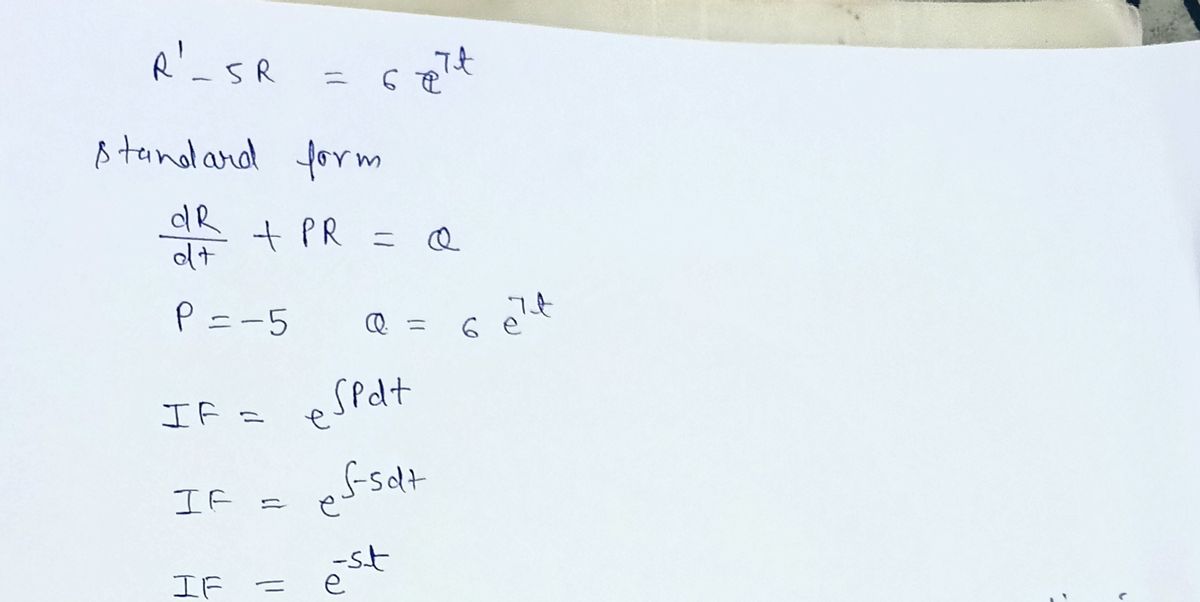 R' - 5R = 6 e^7t
standard form
dR/dt + PR = Q
P = -5 Q = 6 e^7t
IF = e^∫Pdt
IF = e^∫-5dt
IF = e^-5t